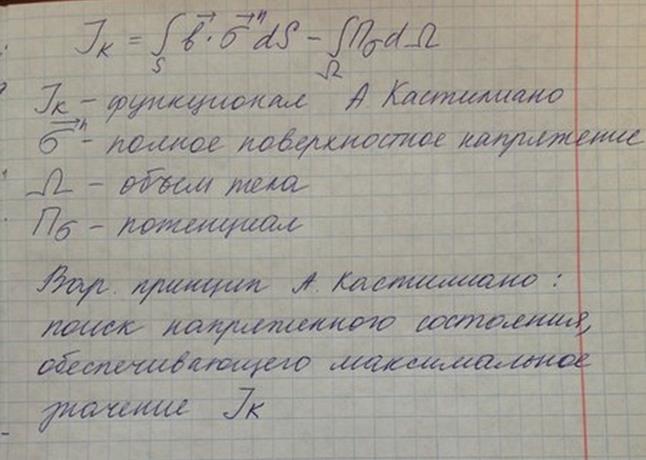 J_K = ∫_S b⃗ · σ⃗ⁿ dS − ∫_Ω П_σ dΩ
J_K – функционал А. Кастилиано
σ⃗ⁿ – полное поверхностное напряжение
Ω – объем тела
П_σ – потенциал
Вар. принцип А. Кастилиано:
поиск напряженного состояния,
обеспечивающего максимальное
значение J_K